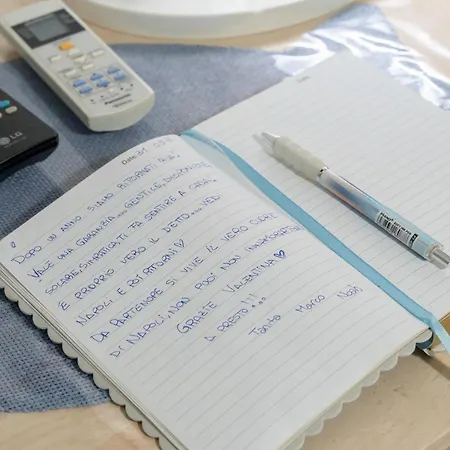 Panasonic
LG
Date: 31
DOPO UN ANNO SIAMO RITORNATI, E
VALE UNA GARANZIA... GENTILE, DISPONIBILE
SOLARE, SIMPATICA, TI FA SENTIRE A CASA.
È PROPRIO VERO IL DETTO... VEDI
NAPOLI E POI RITORNI ♡
DA PARTENOPE SI VIVE IL VERO CUORE
DI NAPOLI, NON PUOI NON INNAMORARTENE
GRAZIE VALENTINA ♡
A PRESTO!!!
Marco Noà